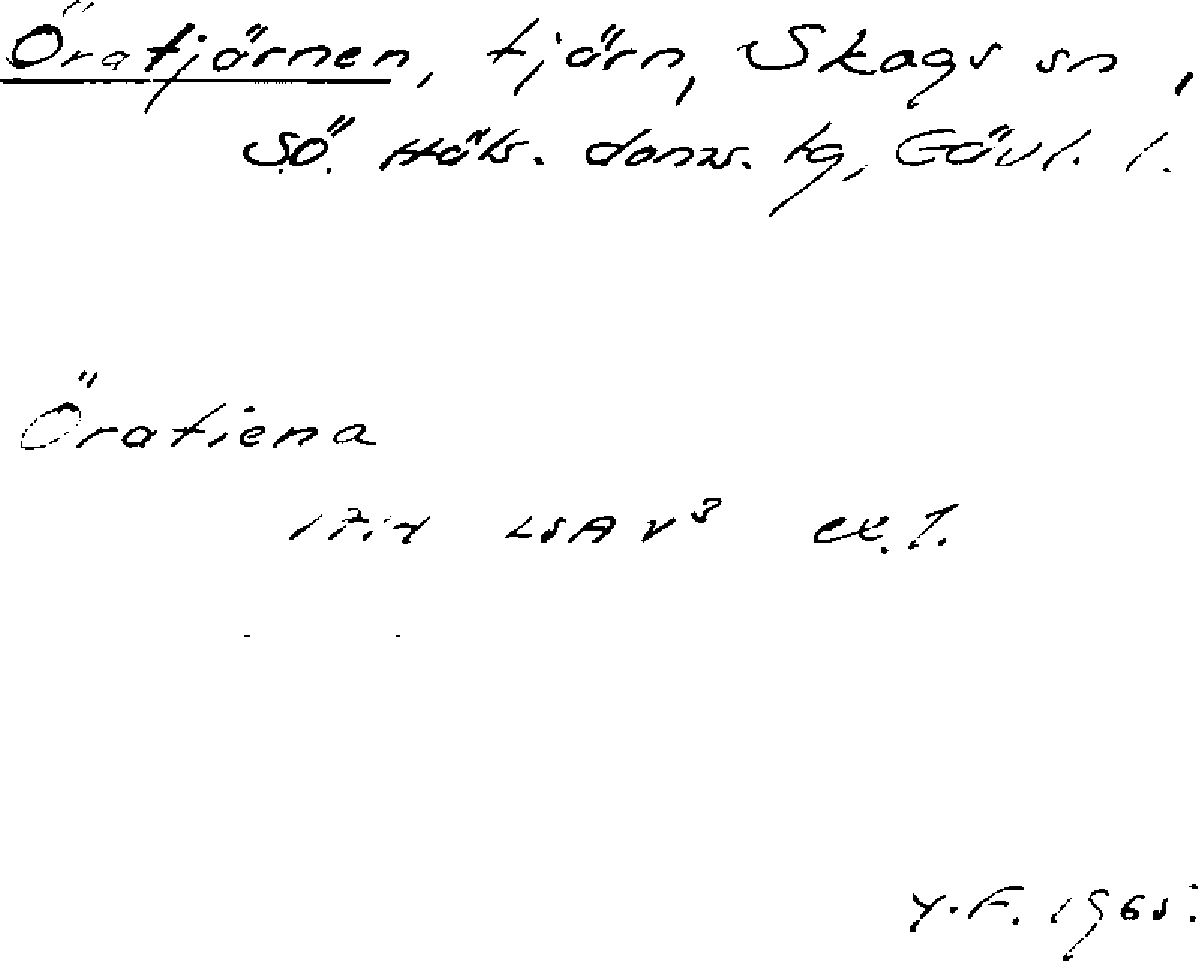 Öratjärnen, tjärn, Skogs sn,
Sö. Häls. doms. tg, Gävl. l.
Öratiena
LSA v³
Y.F. 1965.